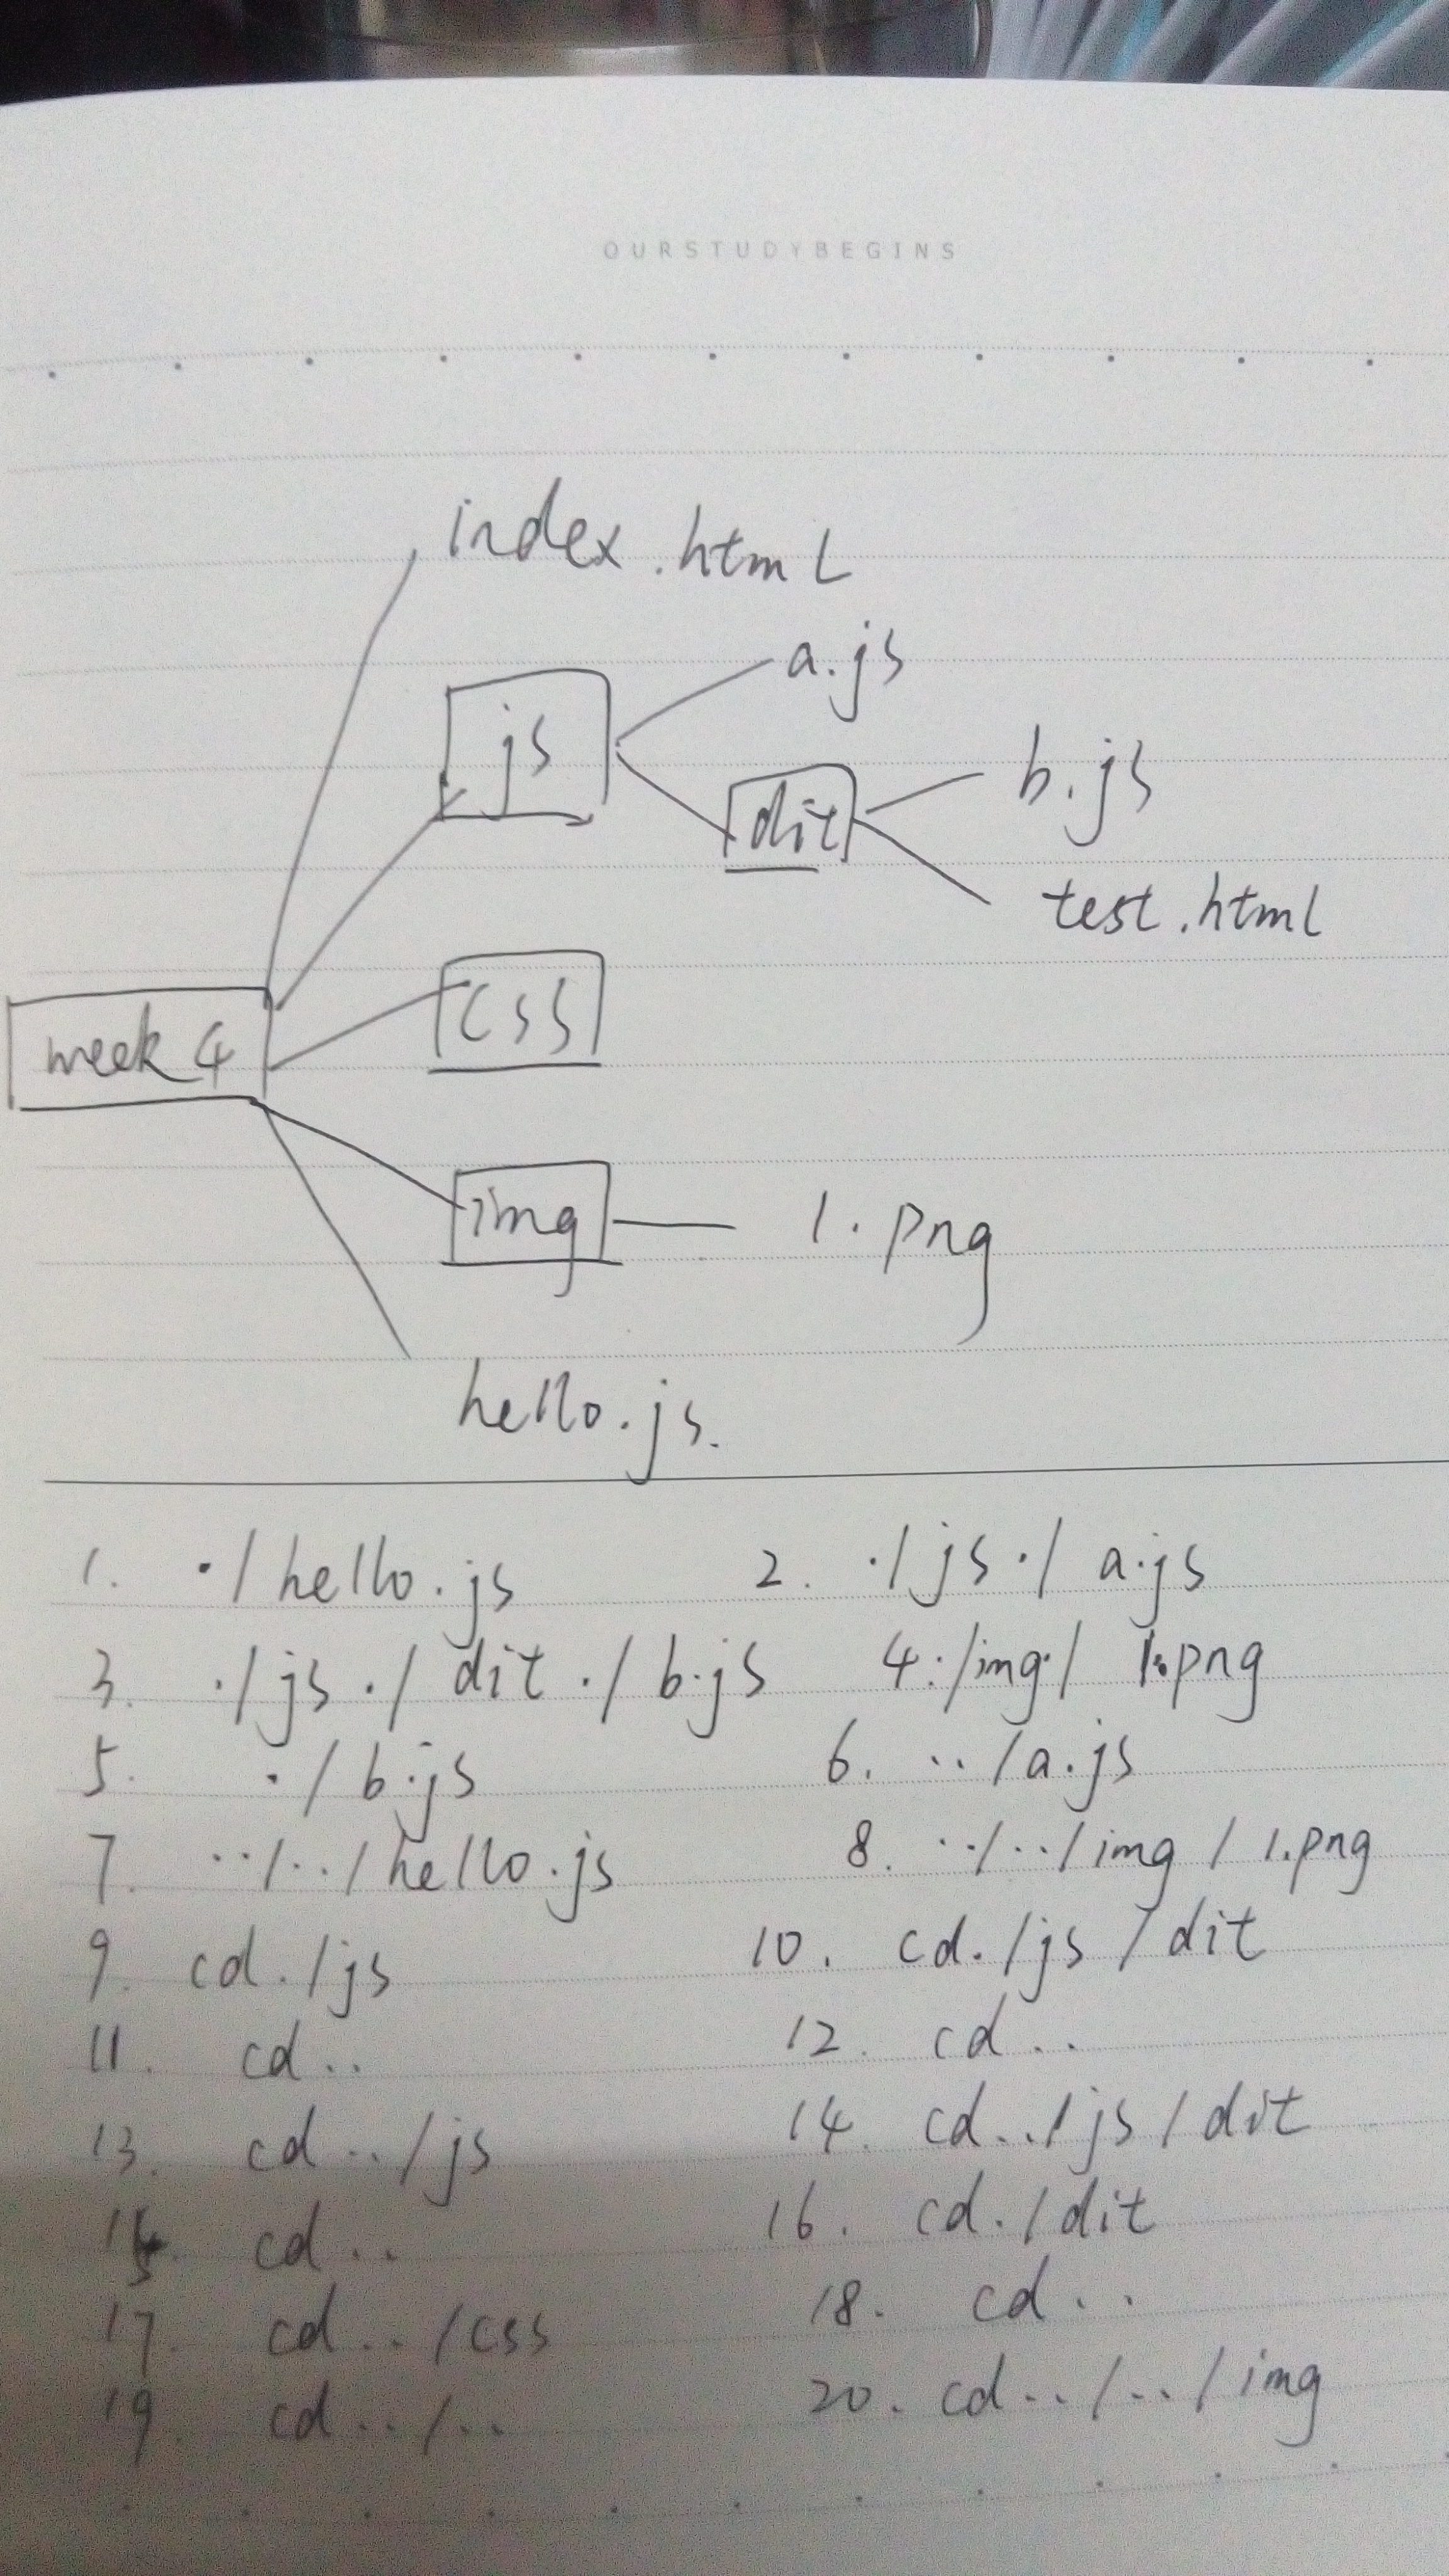 OURSTUDYBEGINS
index.html
a.js
js
b.js
dit
test.html
css
week 4
img
1.png
hello.js.
1. ./hello.js
2. ./js./a.js
3. ./js./dit./b.js
4. ./img./1.png
5. ./b.js
6. ../a.js
7. ../../hello.js
8. ../../img/1.png
9. cd./js
10. cd./js/dit
11. cd..
12. cd..
13. cd../js
14. cd../js/dit
15. cd..
16. cd./dit
17. cd../css
18. cd..
19. cd../..
20. cd../../img